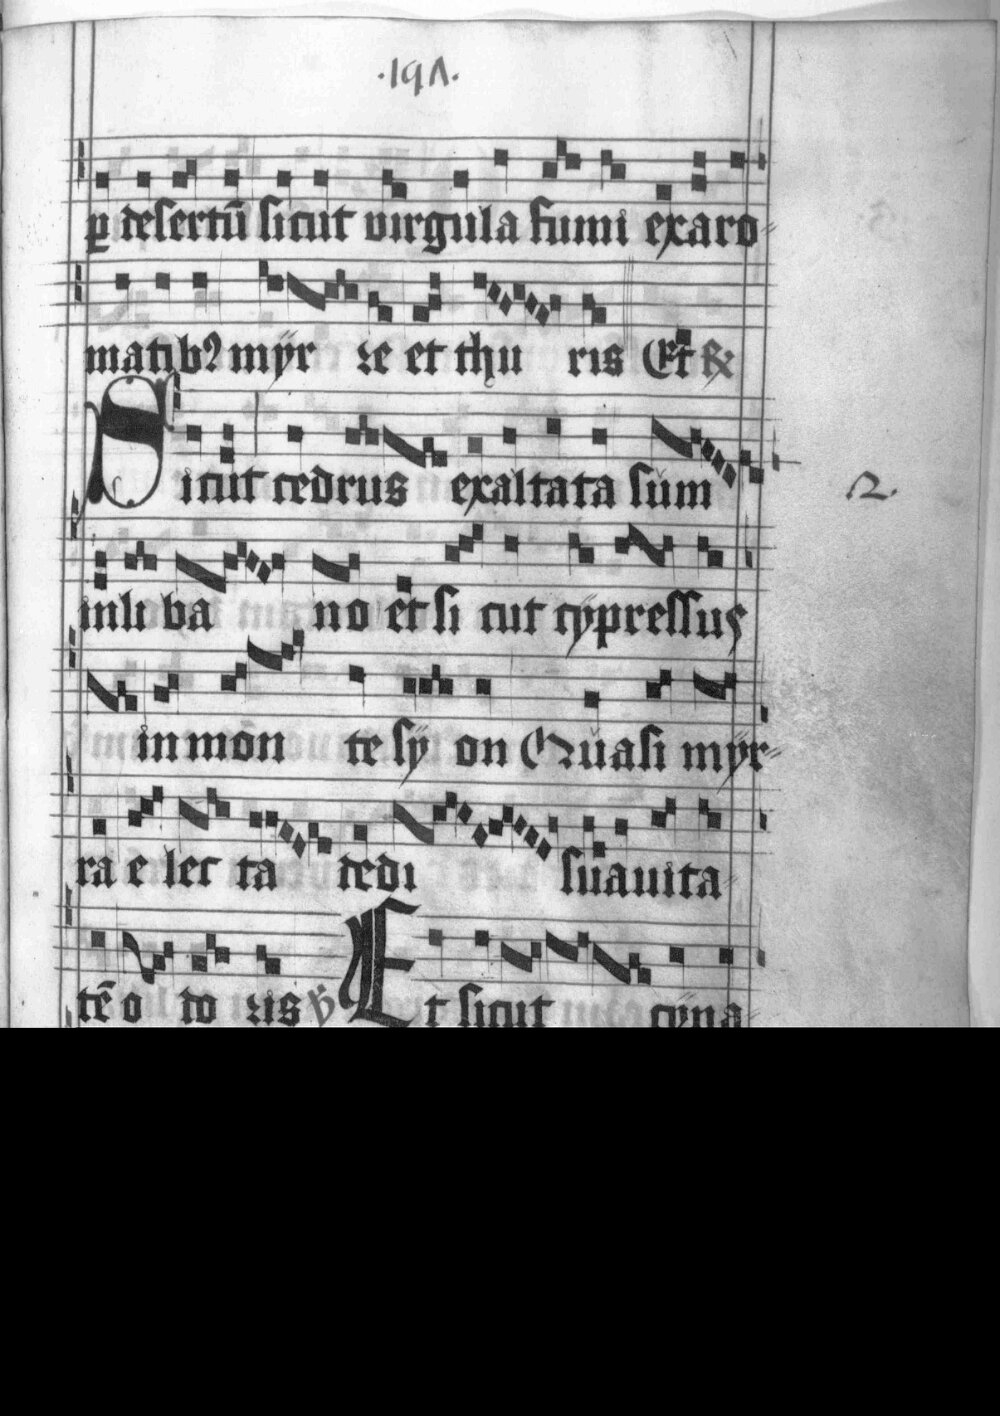 ·197·
ꝑ desertū sicut virgula fumi exaro
matibꝰ mÿr re et thu ris Et
Sicut cedrus exaltata sum
in li ba no et si cut cÿpressus
in mon te sÿ on Quasi mÿr
ra e lec ta dedi suauita
tē o do ris ꝟ Et sicut cÿna
2.